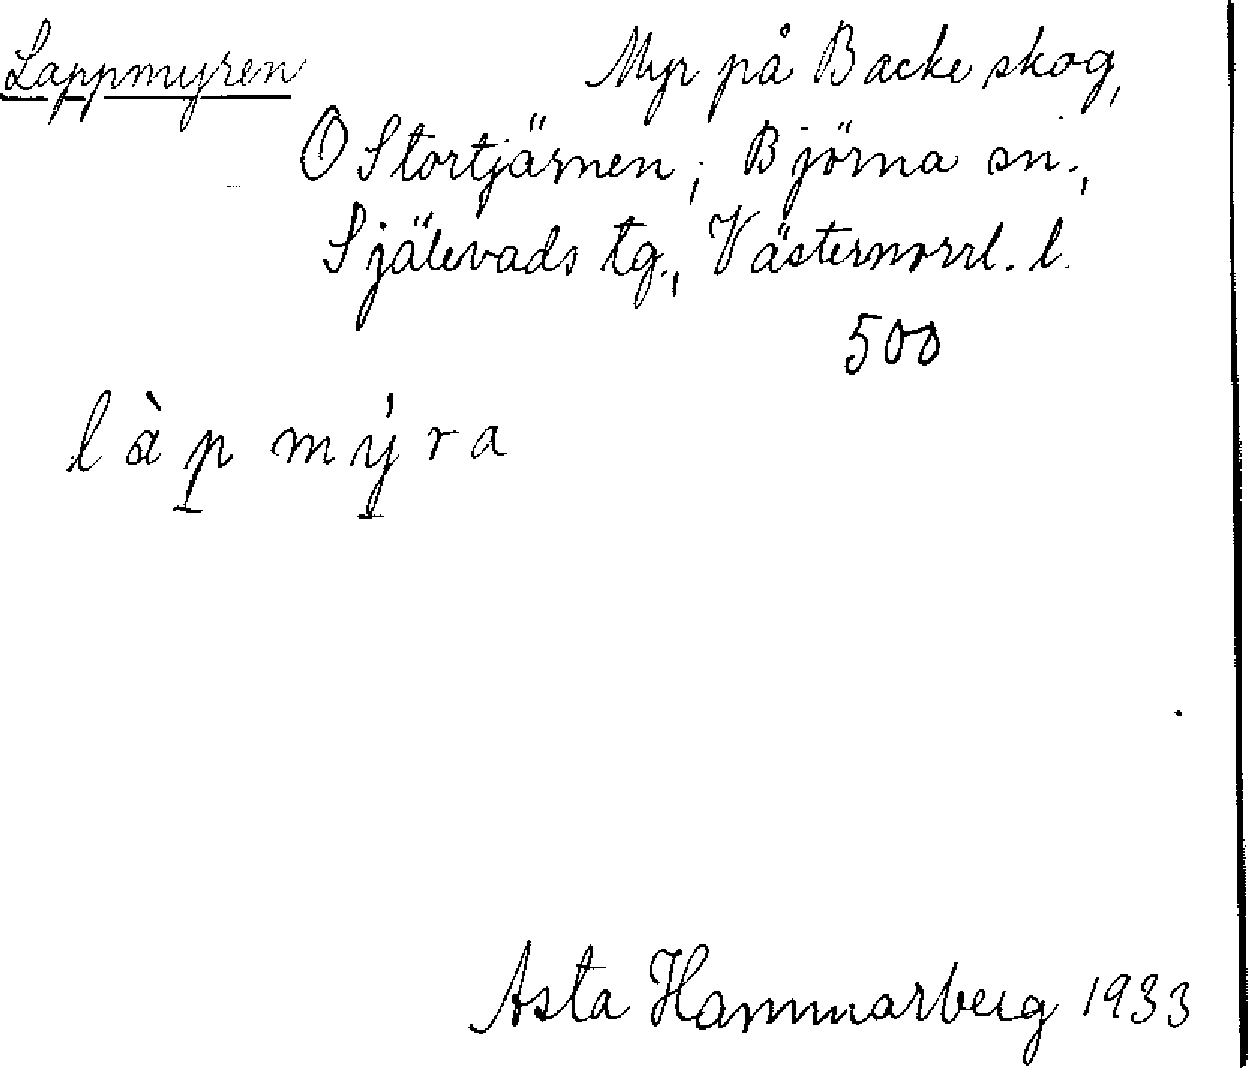 Lappmyren Myr på Backe skog,
O Stortjärnen; Björna sn.,
Själevads tg., Västernorrl. l.
500
làp mýra
Asta Hammarberg 1933